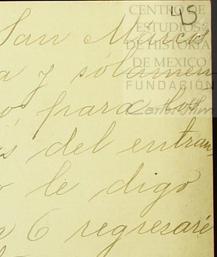 45
CENTRO DE
ESTUDIOS
DE HISTORIA
DE MEXICO
FUNDACIÓN
San Marcos
a y sólamen
ó para los
s del entran
o le digo
a 6 regresaré